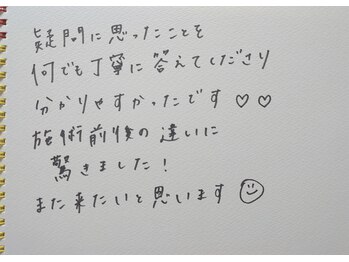 疑問に思ったことを
何でも丁寧に答えてくださり
分かりやすかったです♡♡
施術前後の違いに
驚きました！
また来たいと思います☺